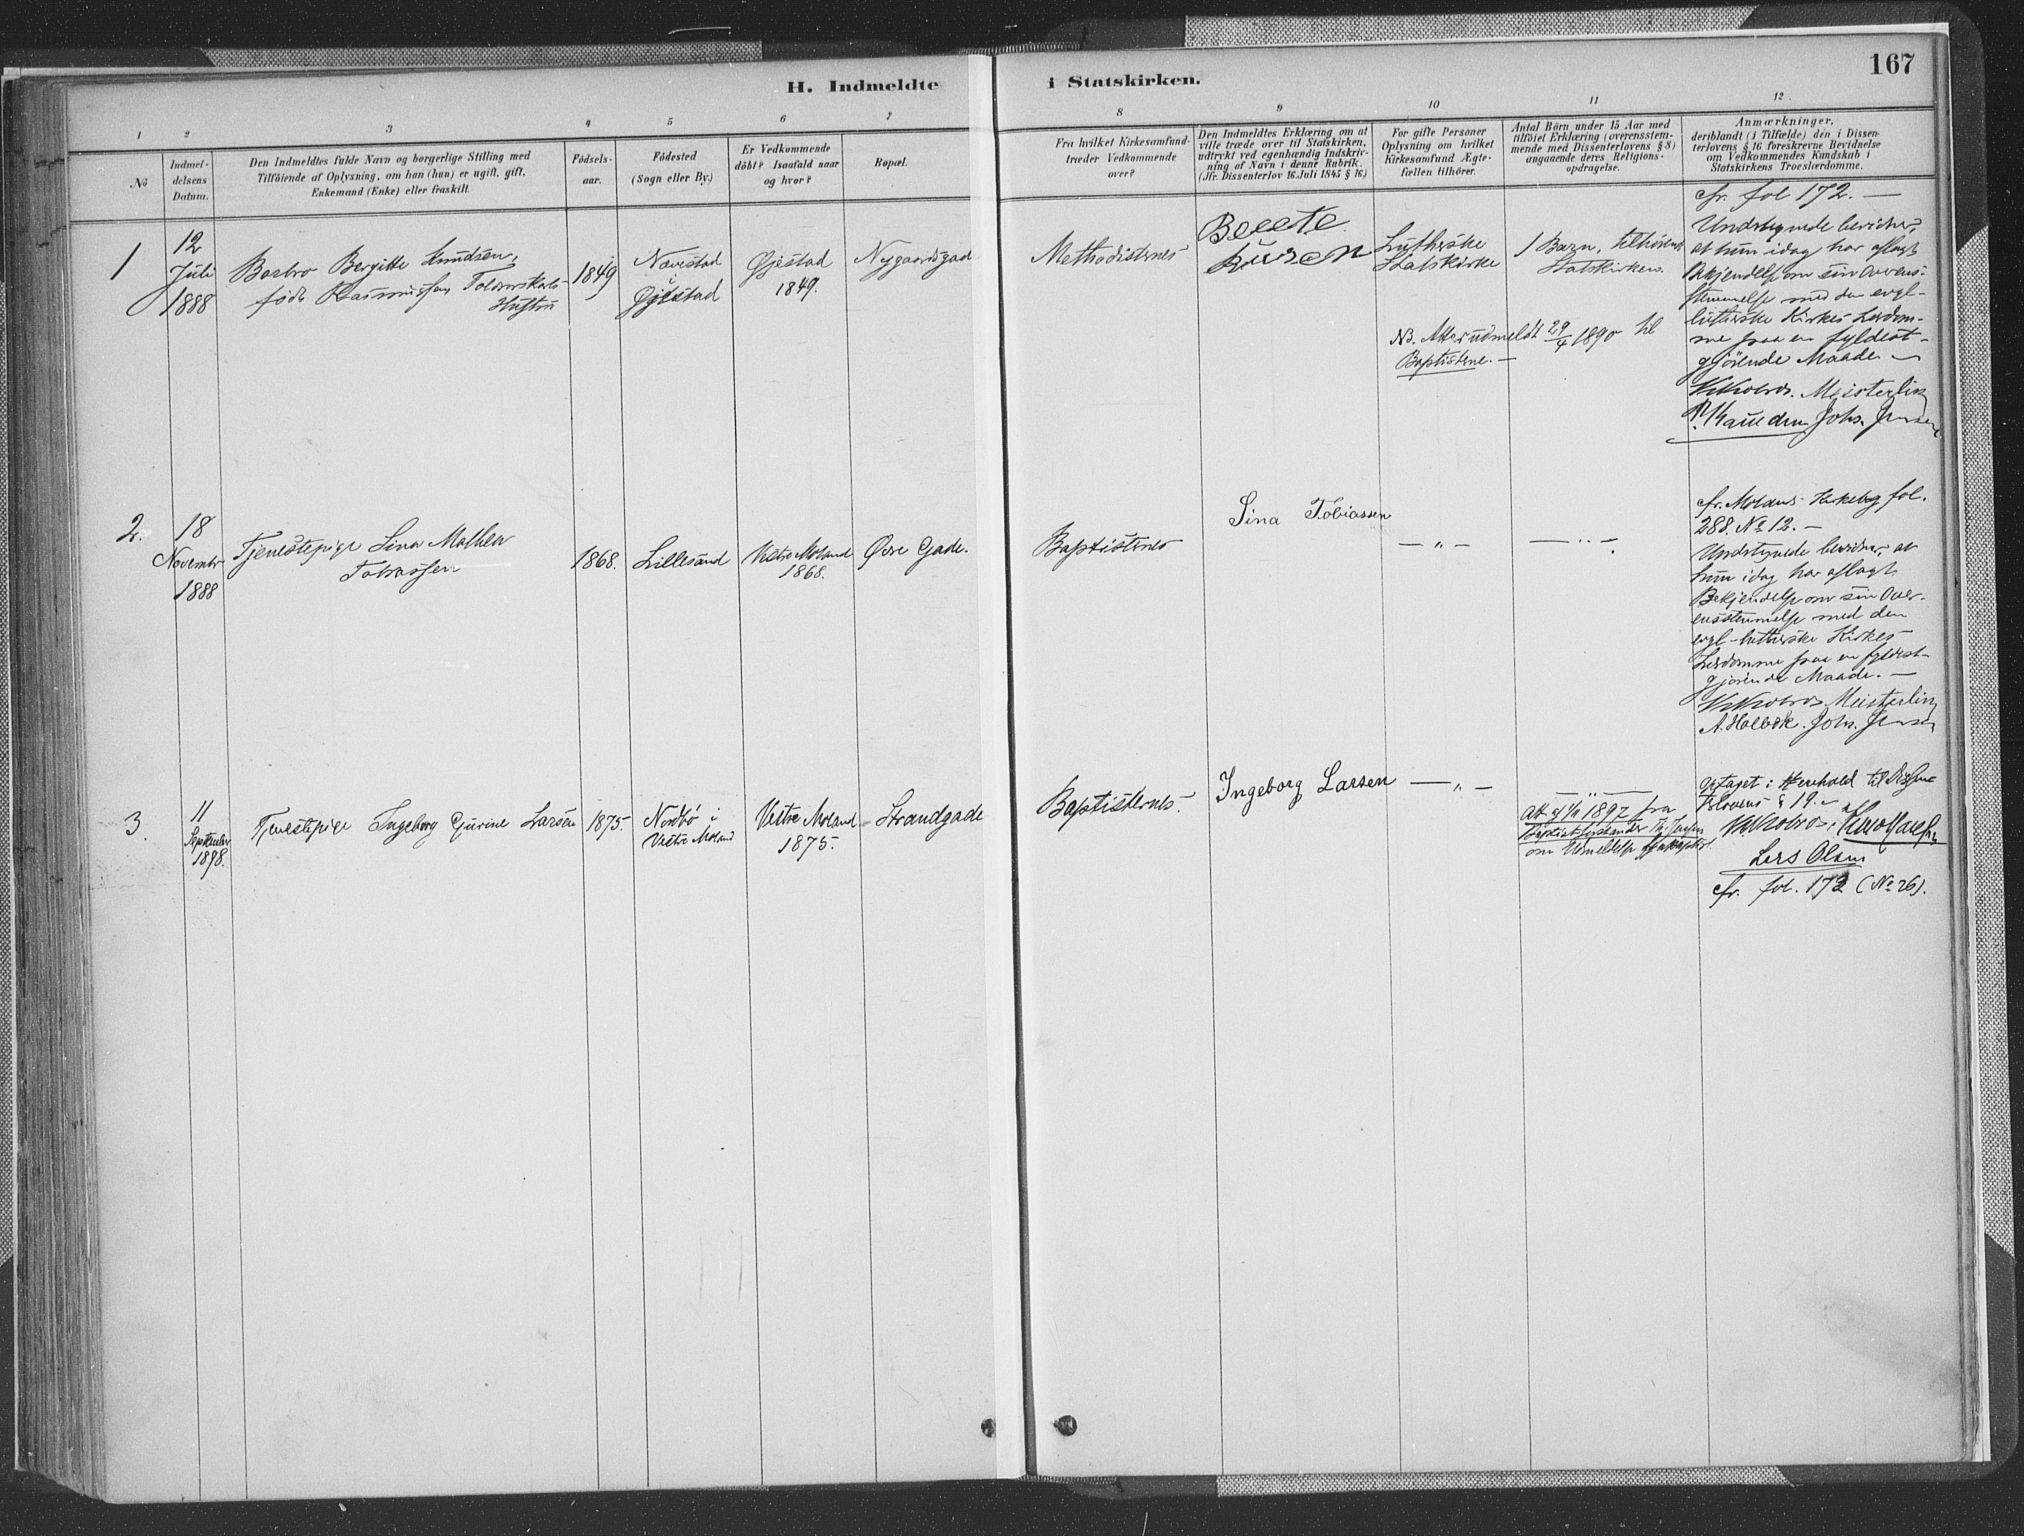 167
H. Indmeldte i Statskirken.
1 2 3 4 5 6 7 8 9 10 11 12
No
Indmel-
delsens
Datum.
Den Indmeldtes fulde Navn og borgerlige Stilling med
Tilföiende af Oplysning, om han (hun) er ugift, gift,
Enkemand (Enke) eller fraskilt.
Födsels-
aar.
Födested
(Sogn eller By.)
Er Vedkommende
döbt? Isaafald naar
og hvor?
Bopæl.
Fra hvilket Kirkesamfund
træder Vedkommende
over?
Den Indmeldtes Erklæring om at
ville træde over til Statskirken,
udtrykt ved egenhændig Indskriv-
ning af Navn i denne Rubrik.
(Jfr. Dissenterlov 16. Juli 1845 § 16.)
For gifte Personer
Oplysning om hvilket
Kirkesamfund Ægte-
fællen tilhörer.
Antal Börn under 15 Aar med
tilföiet Erklæring (overensstem-
mende med Dissenterlovens § 8)
angaaende deres Religions-
opdragelse.
Anmærkninger,
deriblandt (i Tilfælde) den i Dissen-
terlovens § 16 foreskrevne Bevidnelse
om Vedkommendes Kundskab i
Statskirkens Troeslærdomme.
1
12
Juli
1888
Barbro Bergitte Knudsen,
født Rasmussen
Hustru
1849
Nævestad
i
Øjestad
Øjestad
1849.
Nygaardsgad
Methodisternes
Lutherske
Statskirke
1 Barn, tilhørende
Statskirken.
NB. Atter udmeldt 29/4 1890 til
Baptisterne. —
cfr. fol 172. —
Undertegnede bevidner,
at hun idag har aflagt
Bekjendelse om sin Overens-
stemmelse med den evgl-
lutherske Kirkes Lærdom-
me paa en fyldest-
gjørende Maade —
Meisterlin
Johs. Jensen
2.
18
Novembr
1888
Tjenestepige Sina Mathea
Tobiassen
1868.
Lillesand
Vestre Moland
1868.
Øvre Gade.
Baptisternes
Sina Tobiassen
— „ —
— „ —
cfr. Molands Kirkebog fol.
288. No 12. —
Undertegnede bevidner, at
hun idag har aflagt
Bekjendelse om sin Over-
ensstemmelse med den
evgl-lutherske Kirkes
Lærdomme paa en fyldest-
gjørende Maade. —
Meisterlin
A. Holbæk. Johs. Jensen
3.
11
September
1898.
Tjenestepige Ingeborg Gurine Larsen
1875.
Nordbø i
Vestre Moland
Vestre Moland
1875.
Strandgade
Baptisternes.
Ingeborg Larsen
— „ —
— „ —
1897 fra
Baptistforstander
om Udmeldelse
Optaget i Henhold til Dissen-
terlovens § 19. —
Lars Olsen
cfr. fol. 172 (No 26).